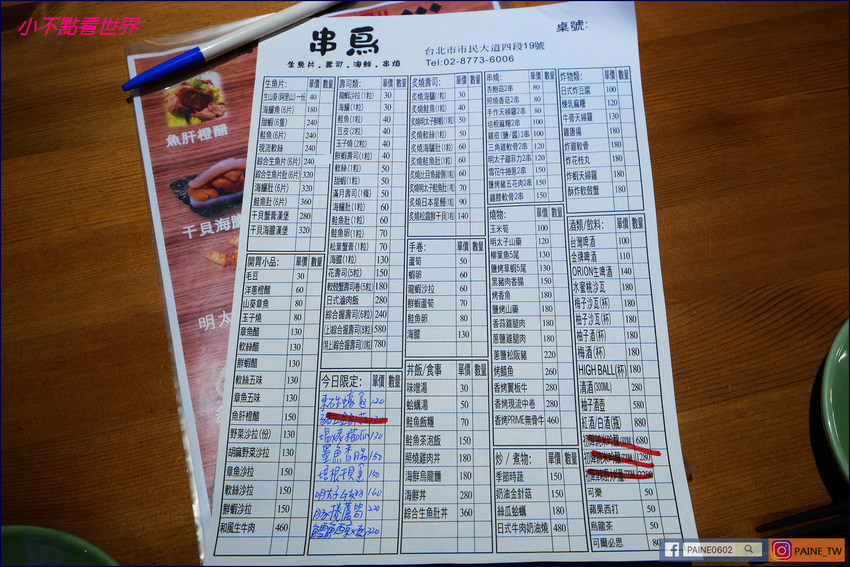 小不點看世界
串鳥
生魚片.壽司.海鮮.串燒
台北市市民大道四段19號
Tel:02-8773-6006
桌號:
魚肝橙醋
干貝海膽
明太
生魚片: 單價 數量
生山葵(阿里山)一份 40
海鱺魚(6片) 180
甜蝦(6隻) 240
鮭魚(6片) 240
現流軟絲 240
綜合生魚片(6片) 240
綜合生魚片肚(6片) 320
海鱺肚(6片) 320
鮭魚肚(6片) 360
干貝蟹膏漢堡 280
干貝海膽漢堡 320
開胃小品: 單價 數量
毛豆 30
洋蔥橙醋 60
山葵章魚 80
玉子燒 80
章魚醋 130
軟絲醋 130
鮮蝦醋 130
軟絲五味 130
章魚五味 130
魚肝橙醋 150
野菜沙拉(份) 130
胡麻野菜沙拉 130
章魚沙拉 150
軟絲沙拉 150
鮮蝦沙拉 150
和風生牛肉 460
壽司類: 單價 數量
龍蝦沙拉(1粒) 30
海鱺(1粒) 30
鮭魚(1粒) 40
豆皮(2粒) 40
玉子燒(2粒) 40
鮮蝦壽司(1粒) 40
軟絲(1粒) 50
甜蝦(1粒) 50
滿月壽司(1條) 50
海鱺肚(1粒) 60
鮭魚肚(1粒) 60
鮭魚卵(1粒) 70
松葉蟹膏(1粒) 70
海膽(1粒) 130
花壽司(5粒) 150
軟殼蟹壽司卷(5粒) 180
日式滷肉飯 280
綜合握壽司(6粒) 240
(上)綜合握壽司(8粒) 580
(特上)綜合握壽司(10粒) 780
今日限定: 單價 數量
120
130
墨魚香腸 150
150
明太子 160
220
320
炙燒壽司: 單價 數量
炙燒海鱺(1粒) 30
炙燒鮭魚(1粒) 40
炙燒明太子鮮蝦(1粒) 50
炙燒軟絲(1粒) 50
炙燒海鱺肚(1粒) 60
炙燒鮭魚肚(1粒) 60
炙燒比目魚緣側(1粒) 60
炙燒明太子鮭魚(1粒) 70
炙燒日本星鰻(1粒) 90
炙燒松露鮮干貝(1粒) 140
手卷: 單價 數量
蘆筍 50
蝦卵 60
龍蝦沙拉 60
鮮蝦蘆筍 70
鮭魚卵 80
海膽 130
丼飯/食事 單價 數量
味噌湯 30
蛤蠣湯 50
鮭魚飯糰 70
鮭魚茶泡飯 150
照燒雞肉丼 180
海鮮烏龍麵 180
海鮮丼 280
綜合生魚肚丼 360
串燒: 單價 數量
杏鮑菇2串 80
明燒香菇2串 80
手作天婦羅2串 80
培根麻糬2串 100
雞皮(鹽/醬)2串 100
三角雞軟骨2串 120
明太子雞菲力2串 120
雪花牛捲蔥2串 150
鹽烤豬五花肉2串 150
雞腿軟骨2串 150
燒物: 單價 數量
玉米筍 100
明太子山藥 120
柳葉魚5尾 130
鹽烤草蝦5尾 130
黑豬肉香腸 150
烤香魚 180
鹽烤山藥 180
香蒜雞腿肉 180
蔥鹽雞腿肉 180
蔥鹽松阪豬 220
烤鯖魚 260
香烤翼板牛 280
香烤現流中卷 280
香烤PRIME無骨牛 460
炒 / 煮物: 單價 數量
季節時蔬 150
奶油金針菇 150
絲瓜蛤蠣 180
日式牛肉奶油燒 480
炸物類: 單價 數量
日式炸豆腐 100
煉乳麻糬 120
牛蒡天婦羅 130
雞唐揚 180
炸雞軟骨 180
炸花枝丸 180
炸蝦天婦羅 180
酥炸軟殼蟹 180
酒類/飲料: 單價 數量
台灣啤酒 100
金牌啤酒 110
ORION生啤酒 140
水蜜桃沙瓦 180
梅子沙瓦(杯) 180
柚子沙瓦(杯) 180
柚子酒(杯) 180
梅酒(杯) 180
HIGH BALL(杯) 180
清酒(300ML) 280
柚子酒壺 580
紅酒/白酒(瓶) 880
680
1280
2280
可樂 50
蘋果西打 50
烏龍茶 50
可爾必思 80
PAINE0602
PAINE_TW